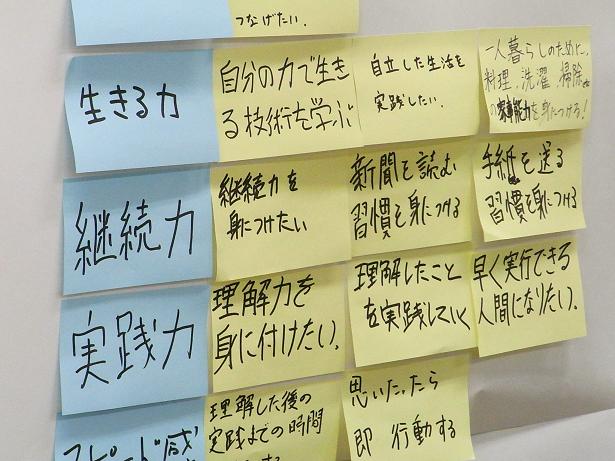 つなげたい.
生きる力
自分の力で生き
る技術を学ぶ
自立した生活を
実践したい.
一人暮らしのために、
料理、洗濯、掃除など
の家事能力を身につける!
継続力
継続力を
身につけたい
新聞を読む
習慣を身につける
手紙を送る
習慣を身につける
実践力
理解力を
身に付けたい.
理解したこと
を実践していく
早く実行できる
人間になりたい.
スピード感
理解した後の
実践までの時間
思いたったら
即 行動する